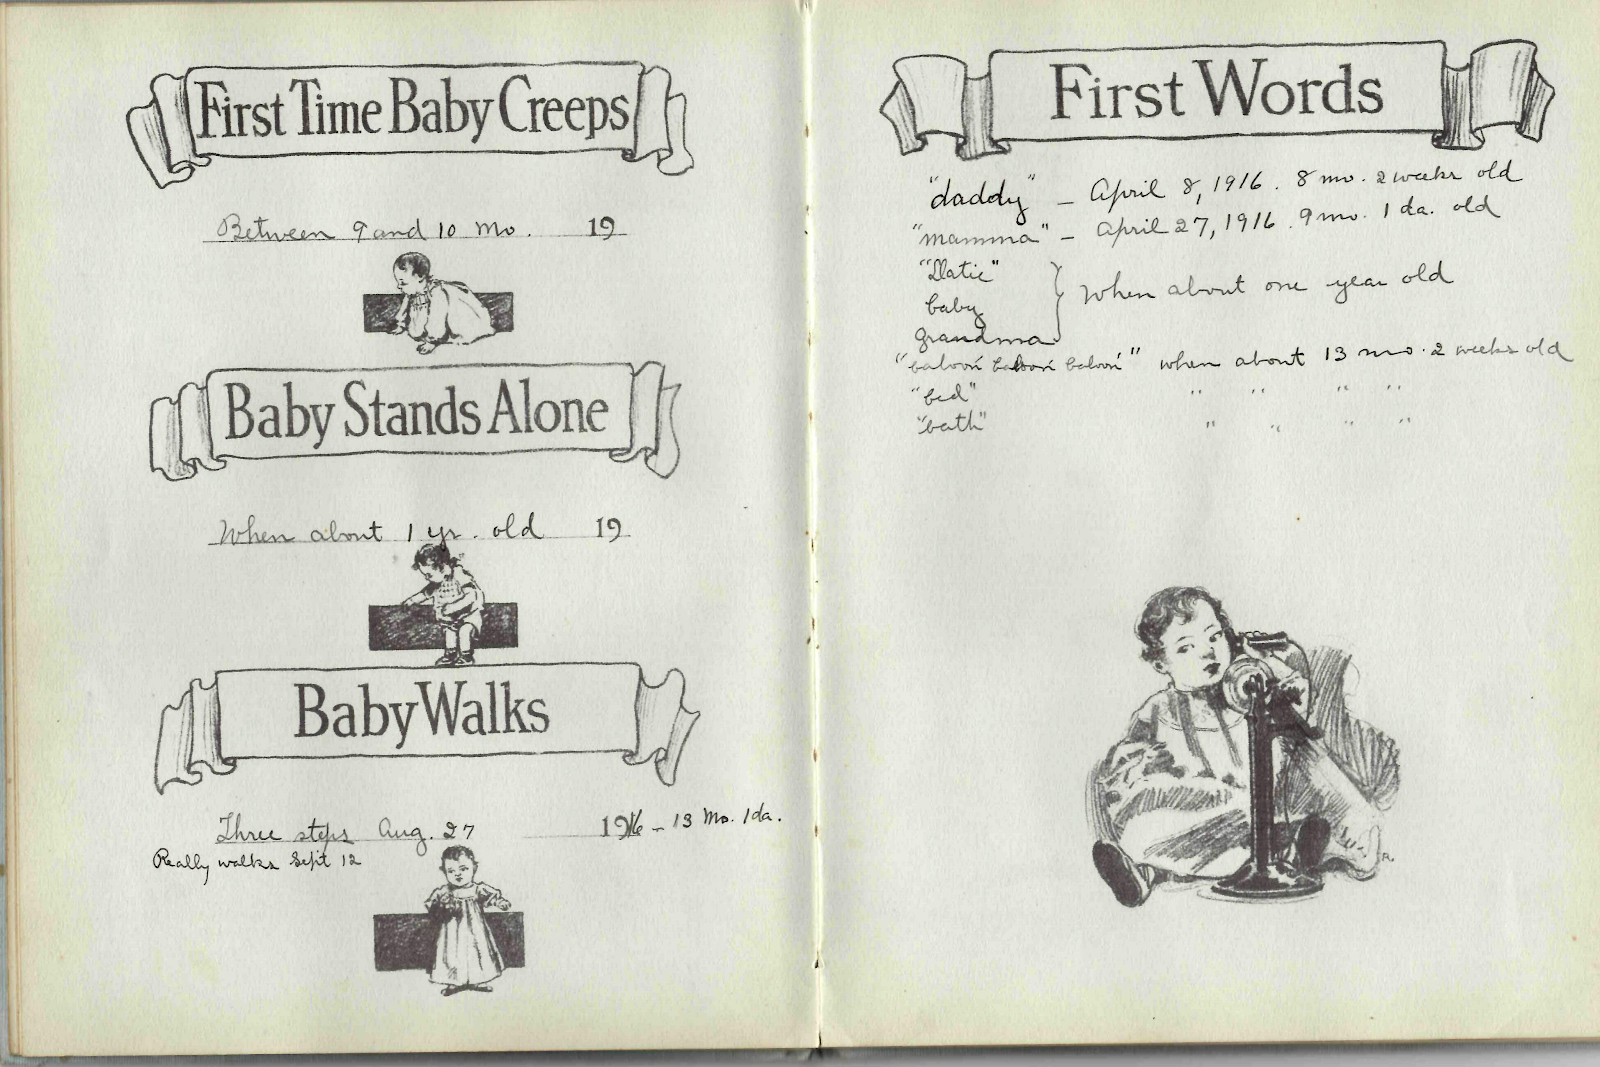 First Time Baby Creeps
Between 9 and 10 mo. 19
Baby Stands Alone
When about 1 yr. old 19
Baby Walks
Three steps Aug. 27 1916 - 13 mo. 1 da.
Really walks Sept 12
First Words
"daddy" - April 8, 1916. 8 mo. 2 weeks old
"mamma" - April 27, 1916. 9 mo. 1 da. old
baby } When about one year old
grandma
"baloon baloon baloon" when about 13 mo. 2 weeks old
"bed" " " " "
"bath" " " " "